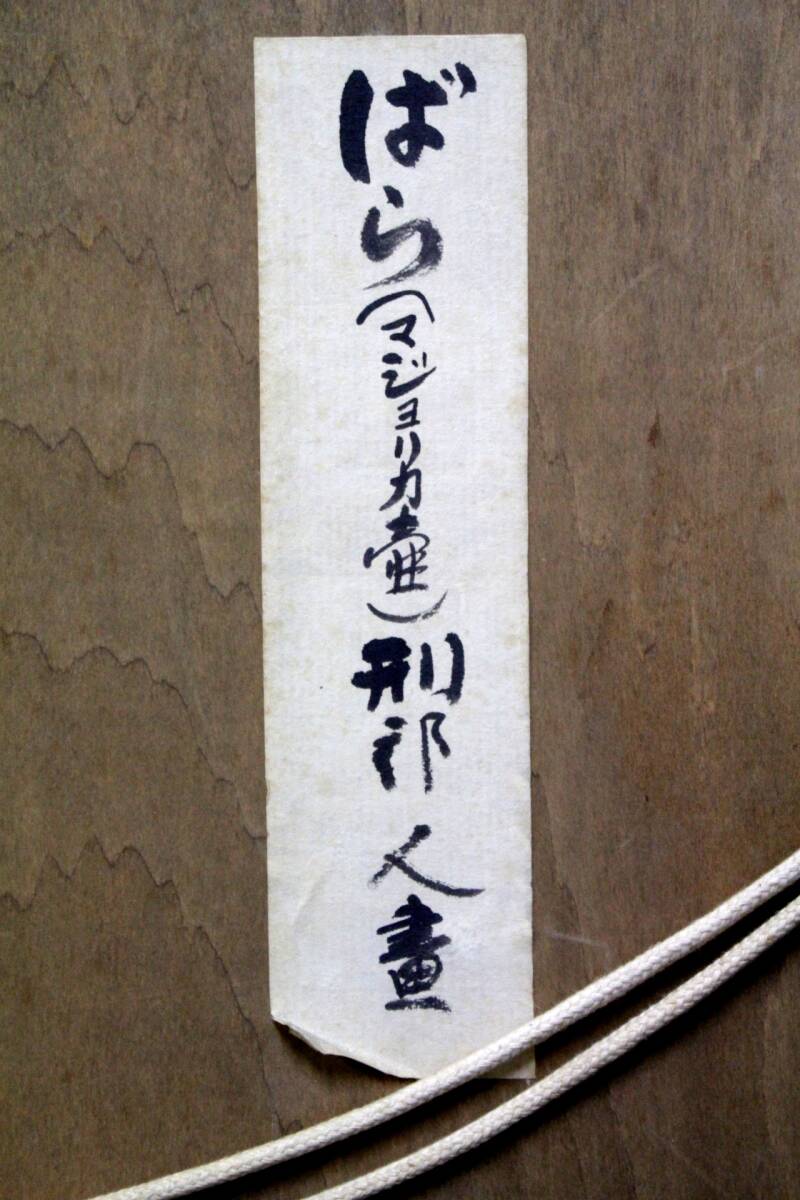 ばら(マジョリカ壺)刑部人畫